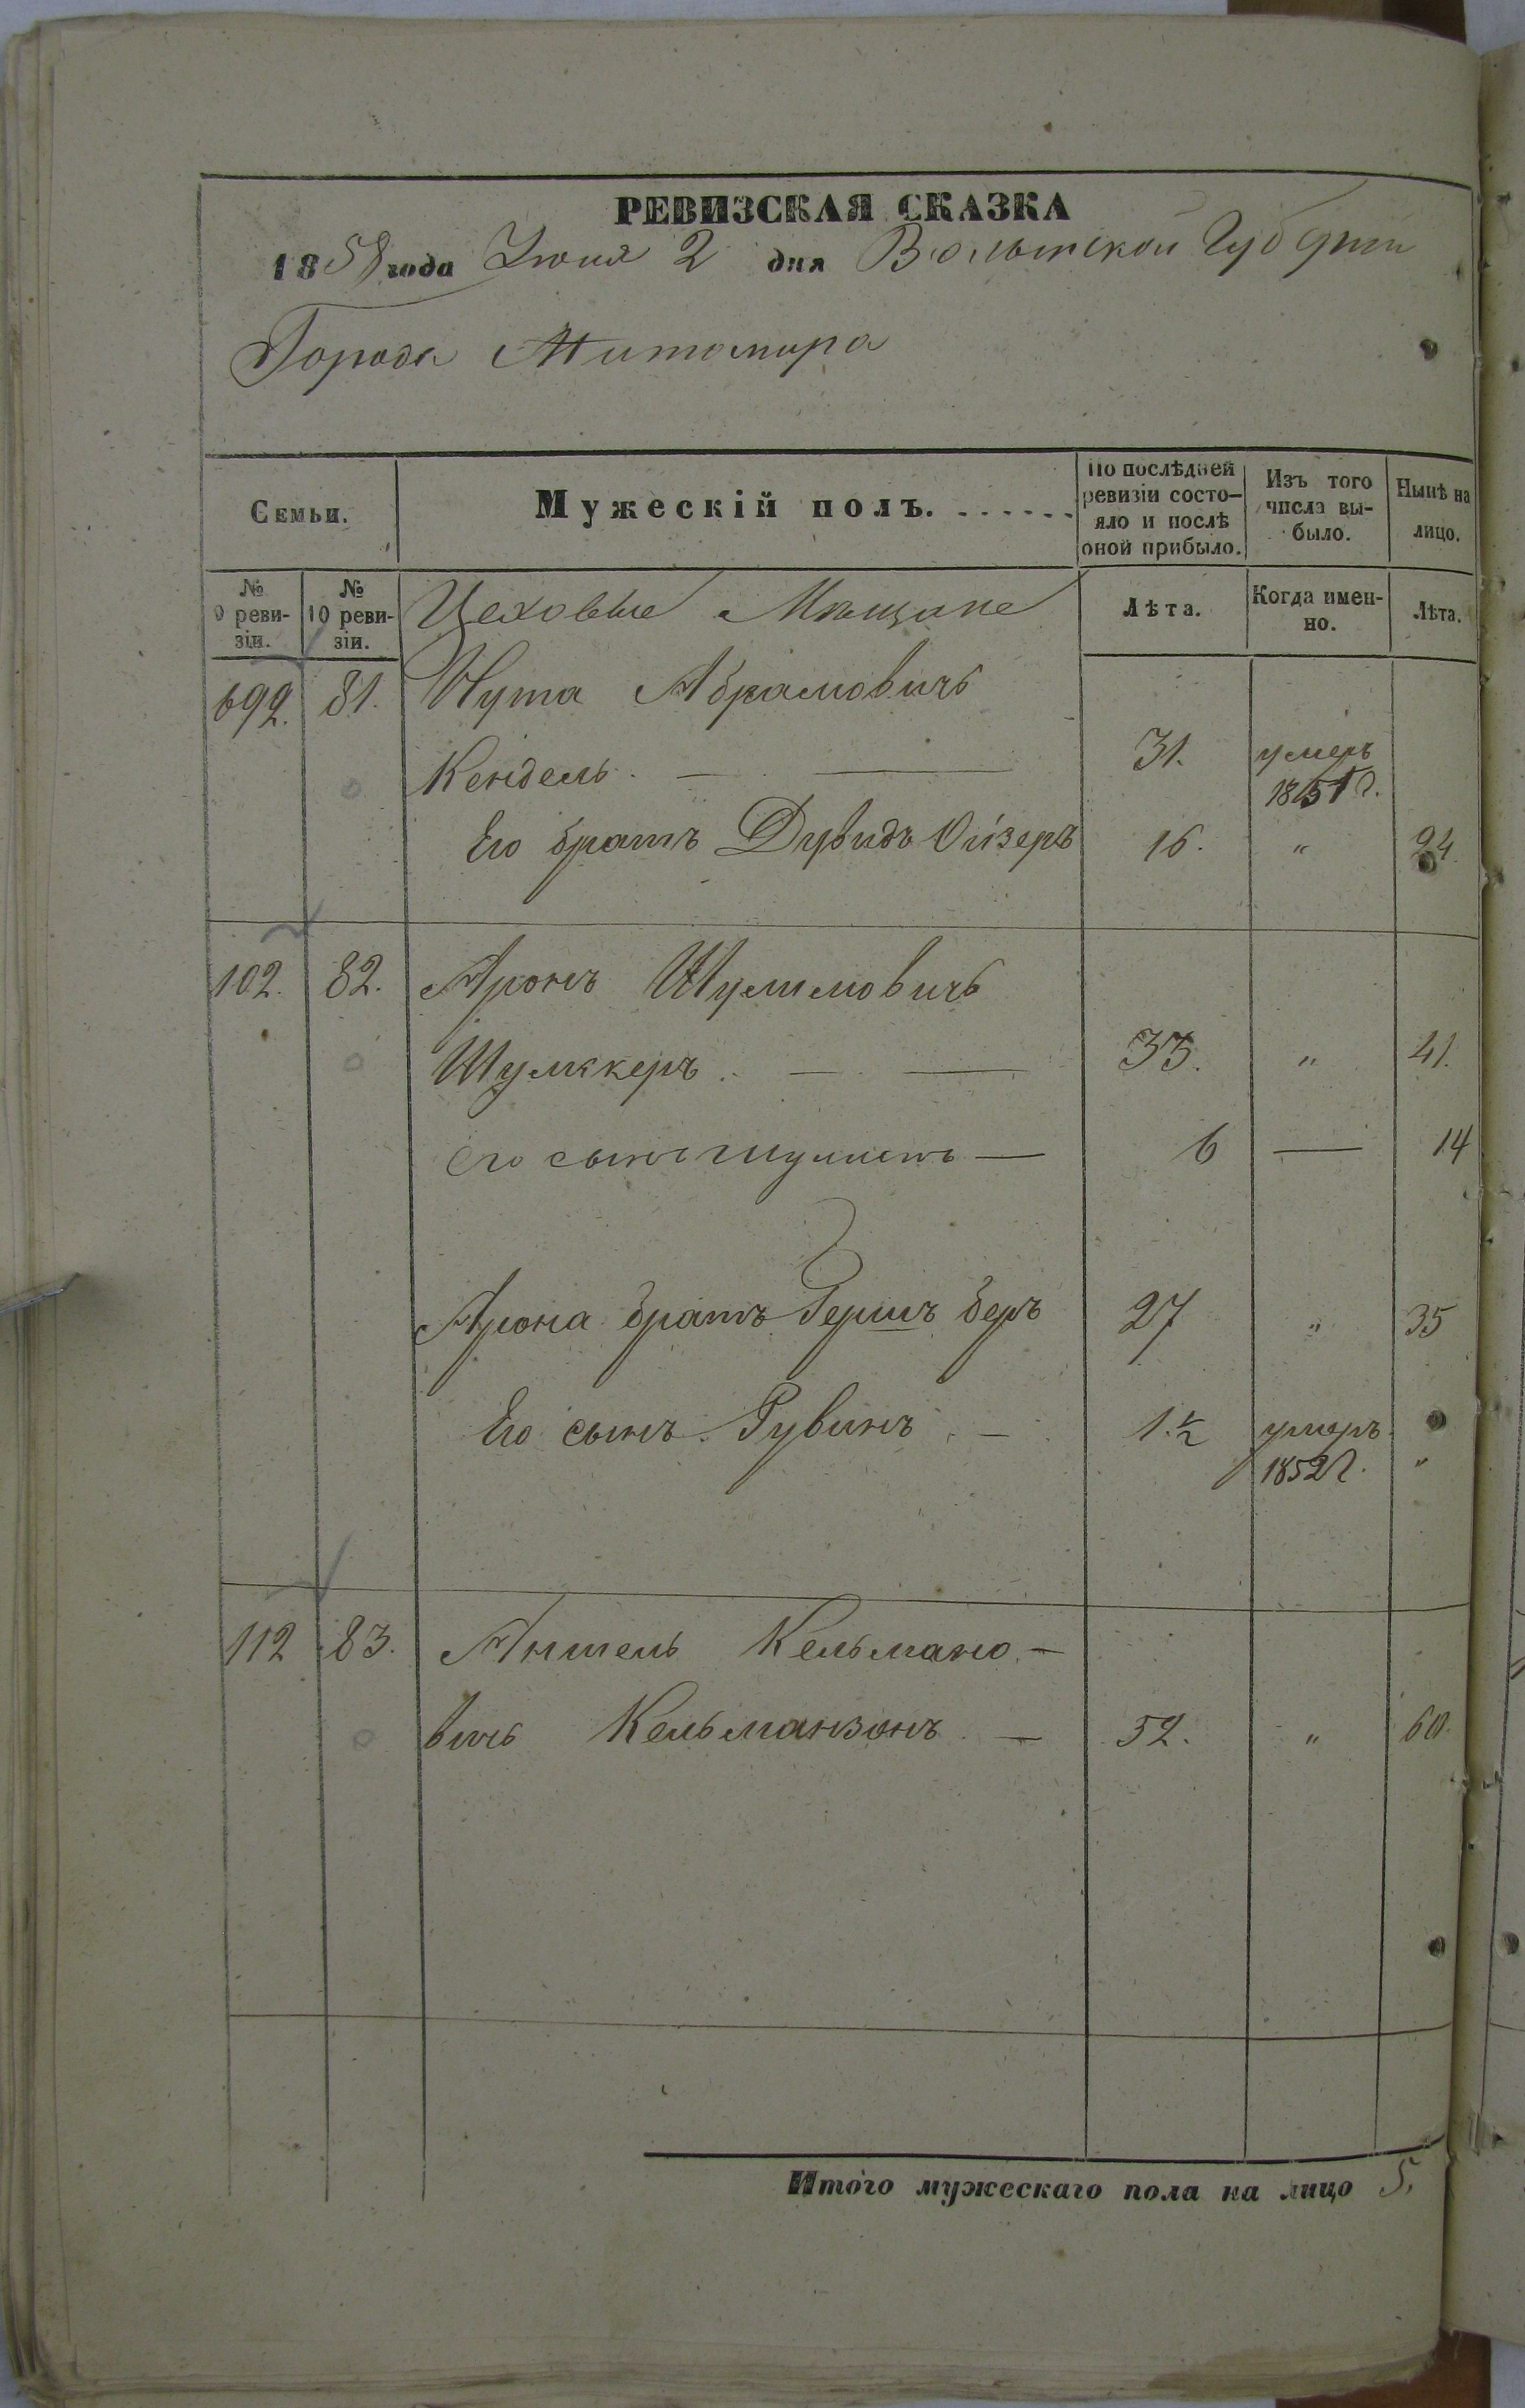 РЕВИЗСКАЯ СКАЗКА
1858 года Іюня 2 дня Волынской Губерніи
Города Житомира
Семьи.
Мужескій полъ. . . . . . .
По послѣдней ревизіи состо-
яло и послѣ оной прибыло.
Изъ того числа вы-
было.
Нынѣ на лицо.
№ 9 реви-
зіи.
№ 10 реви-
зіи.
Цеховые Мѣщане
Лѣта.
Когда имен-
но.
Лѣта.
692. 81. Нута Абрамовичъ
Кендель. — — 31. умеръ
1851 г.
Его братъ Дувидъ Ойзеръ 16. " 24.
102. 82. Аронъ Шулимовичъ
Шумккеръ. — — 33. " 41.
Его сынъ Шулимъ — 6 — 14
Арона братъ Гершъ беръ 27 " 35
Его сынъ Рувинъ. — 1.½ умеръ
1852 г. "
112 83. Аншель Кельмано-
вичъ Кельманзонъ — 52. " 60.
Итого мужескаго пола на лицо 5.